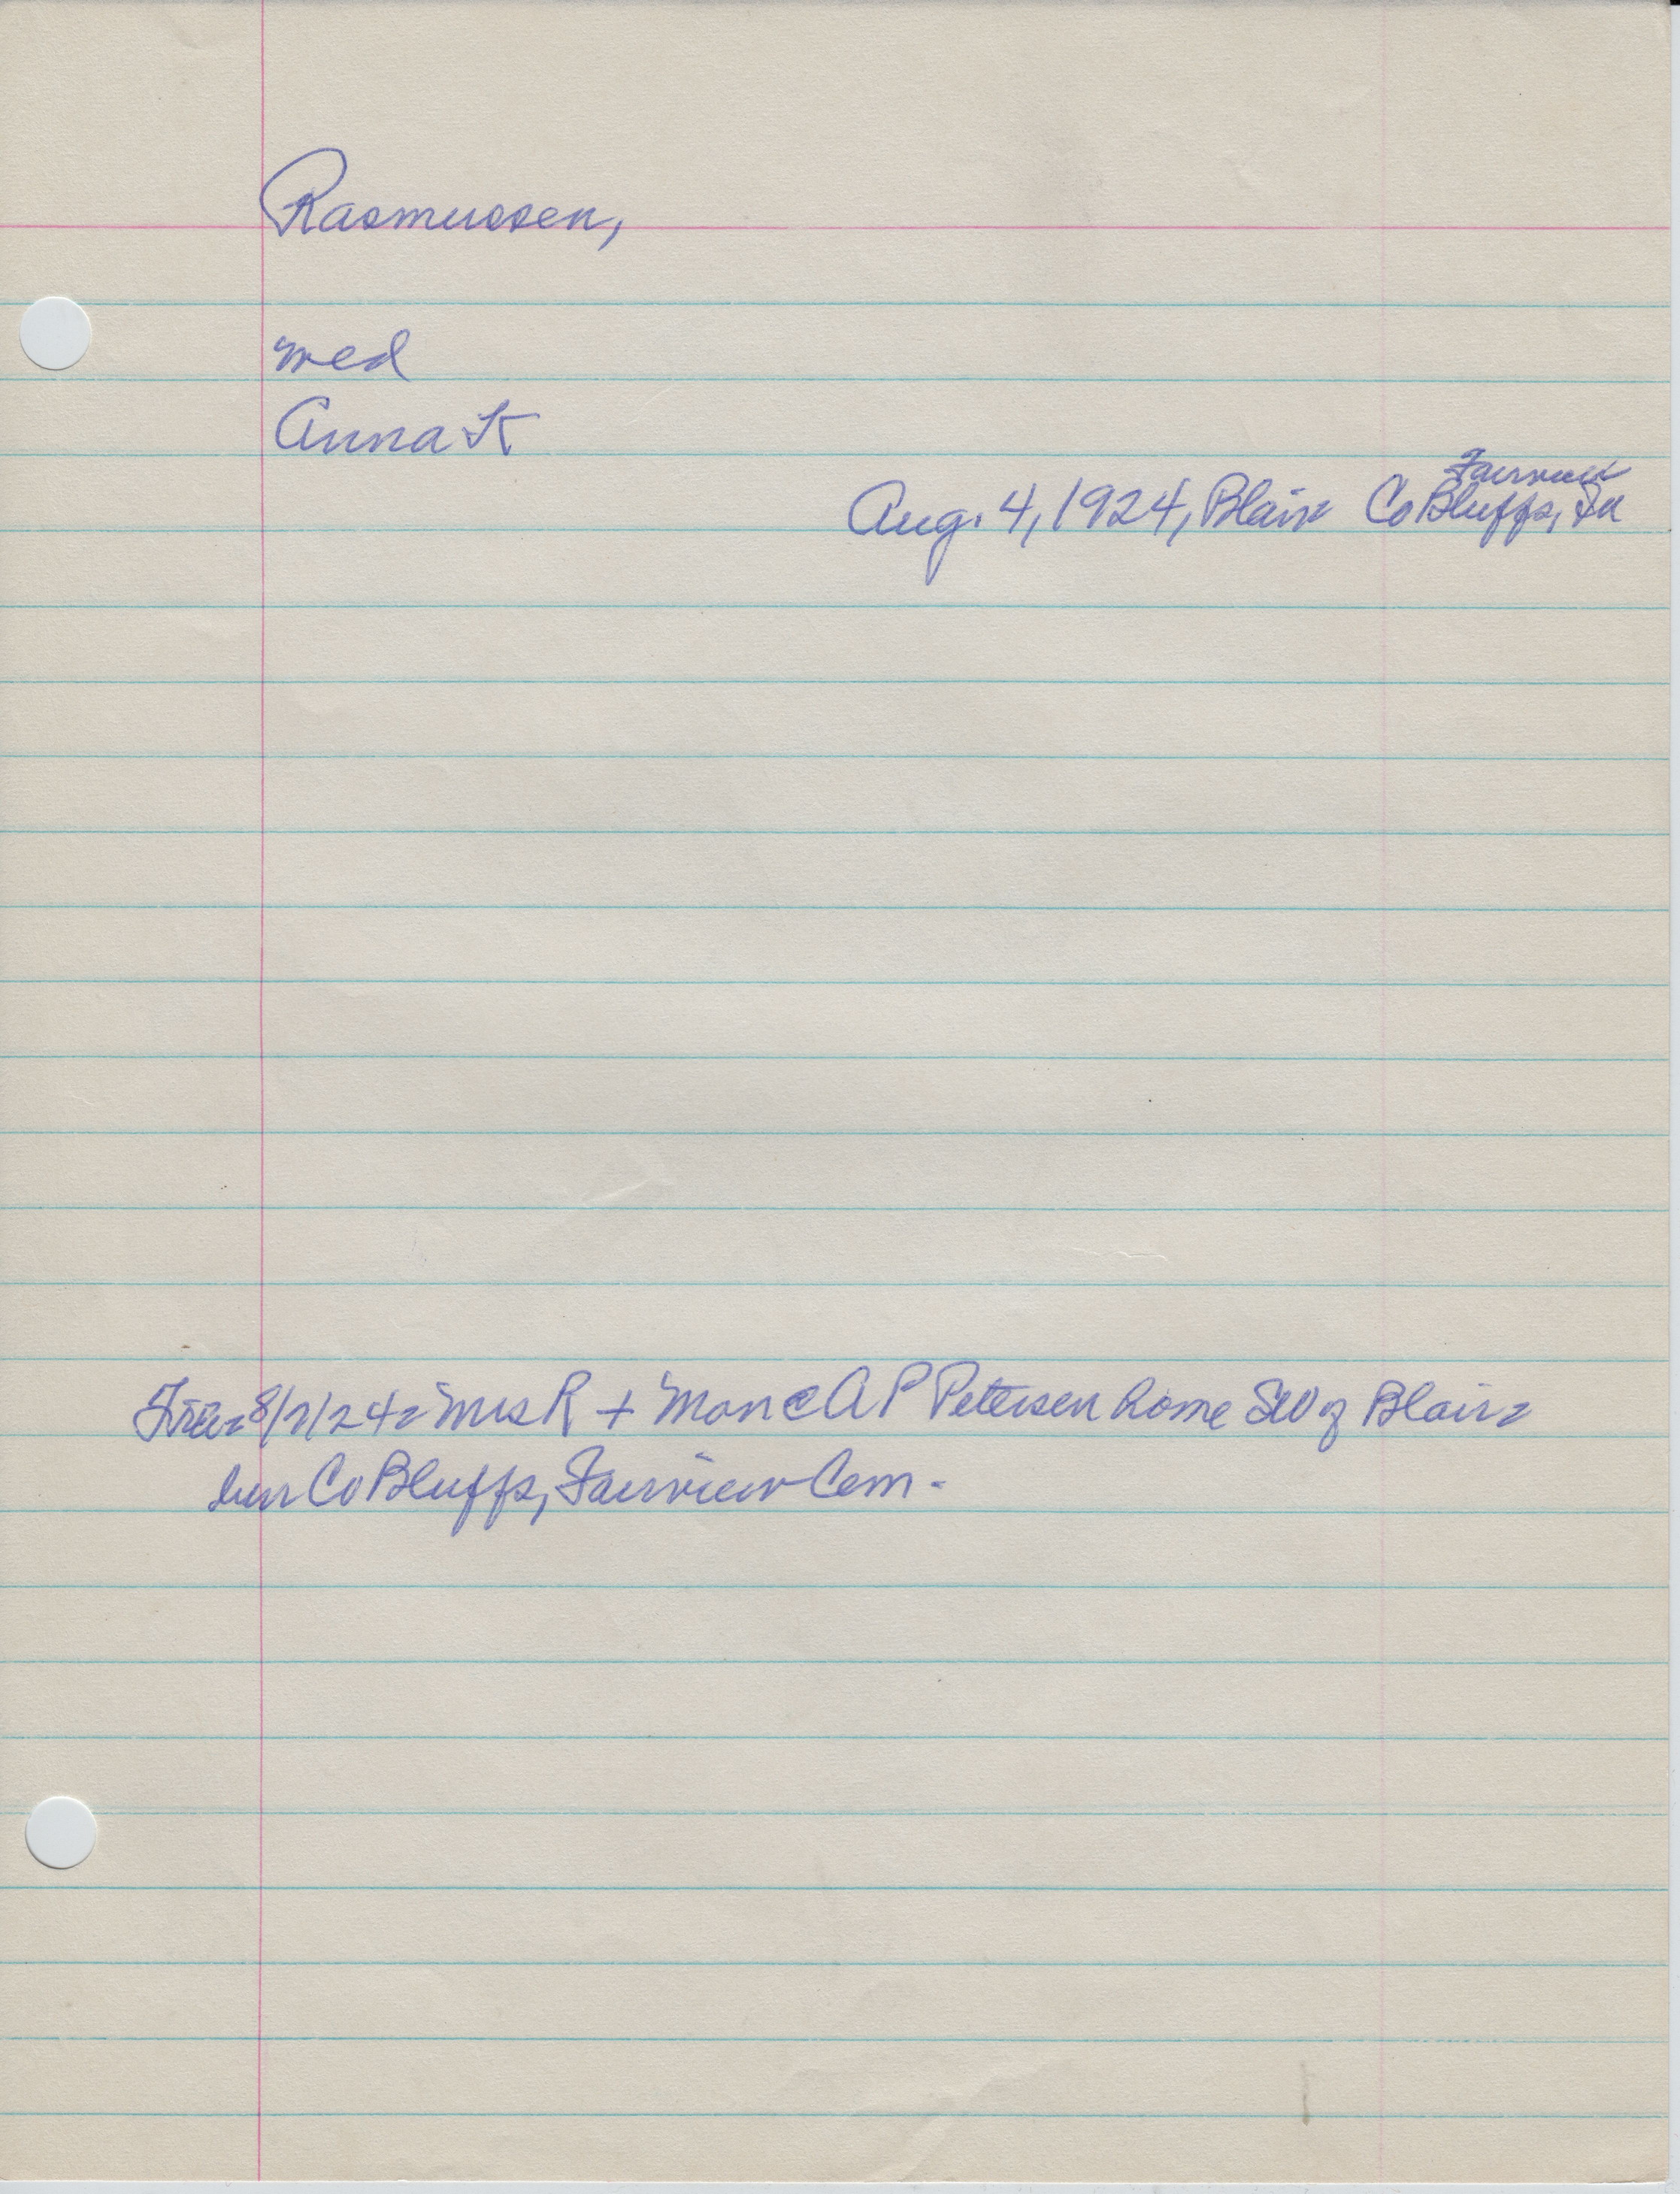 Rasmussen,
med
Anna K
Fairview
Aug. 4, 1924, Blair Co Bluffs, Ia
8/7/24 Mrs R + Mon @ A P Petersen home SW of Blair
bur Co Bluffs, Fairview Cem.